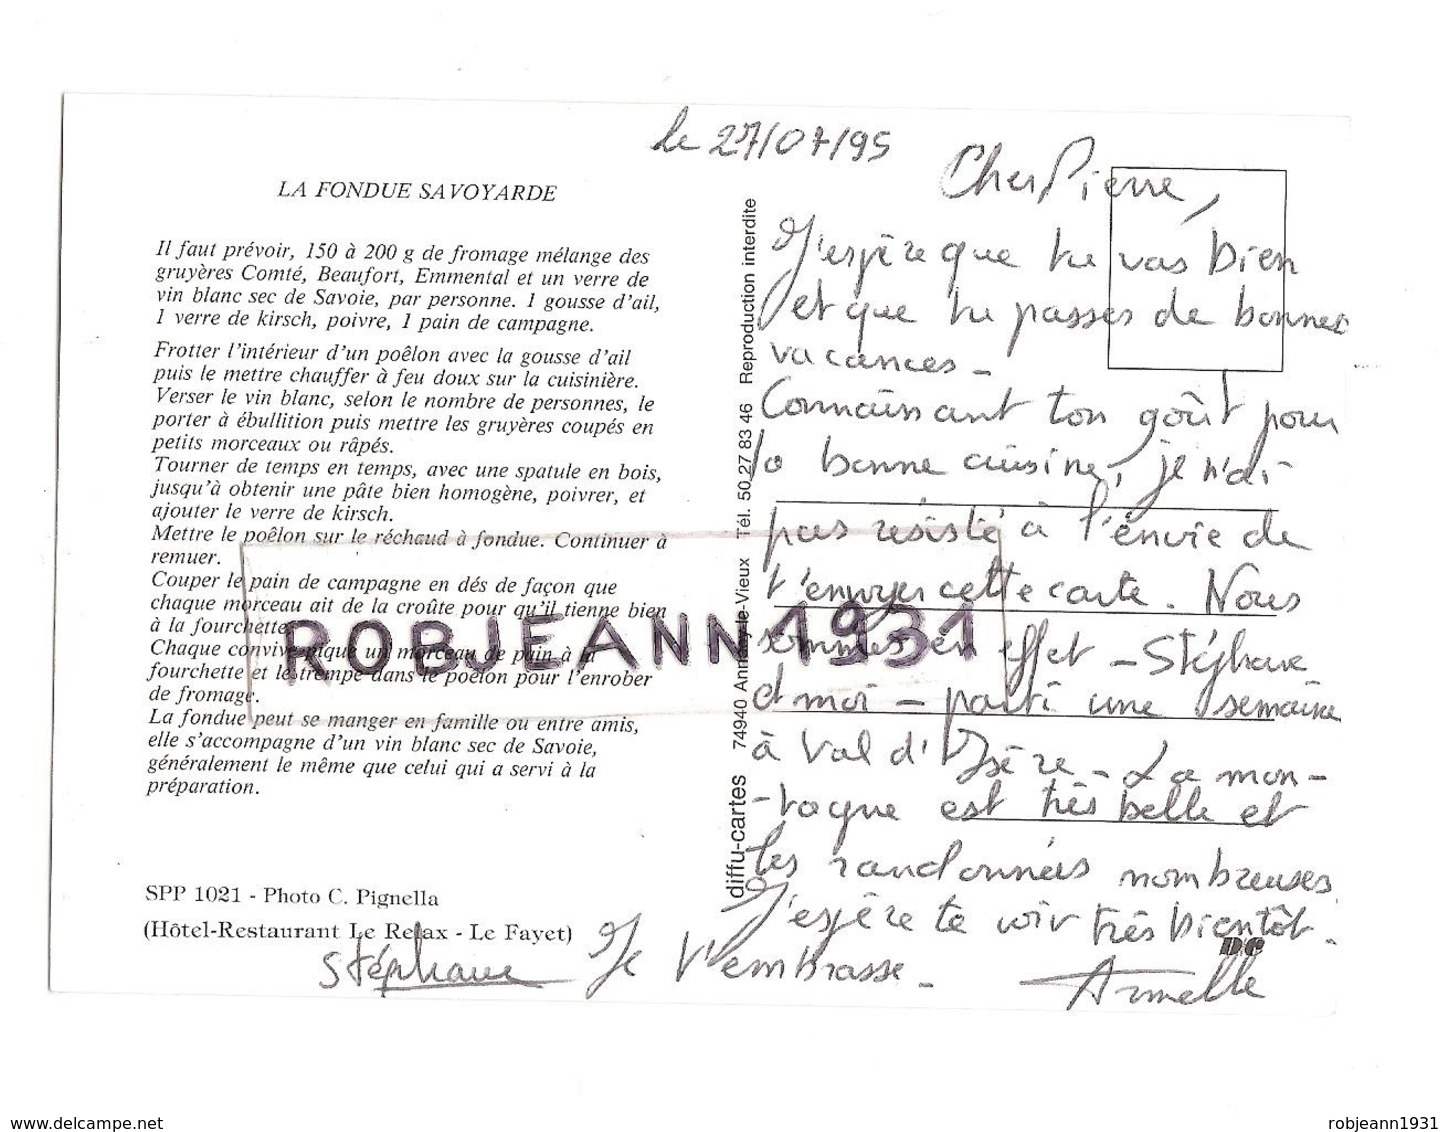 le 27/07/95
LA FONDUE SAVOYARDE
Il faut prévoir, 150 à 200 g de fromage mélange des
gruyères Comté, Beaufort, Emmental et un verre de
vin blanc sec de Savoie, par personne. 1 gousse d'ail,
1 verre de kirsch, poivre, 1 pain de campagne.
Frotter l'intérieur d'un poêlon avec la gousse d'ail
puis le mettre chauffer à feu doux sur la cuisinière.
Verser le vin blanc, selon le nombre de personnes, le
porter à ébullition puis mettre les gruyères coupés en
petits morceaux ou râpés.
Tourner de temps en temps, avec une spatule en bois,
jusqu'à obtenir une pâte bien homogène, poivrer, et
ajouter le verre de kirsch.
Mettre le poêlon sur le réchaud à fondue. Continuer à
remuer.
Couper le pain de campagne en dés de façon que
chaque morceau ait de la croûte pour qu'il tienne bien
à la fourchette.
Chaque convive pique un morceau de pain à la
fourchette et le trempe dans le poêlon pour l'enrober
de fromage.
La fondue peut se manger en famille ou entre amis,
elle s'accompagne d'un vin blanc sec de Savoie,
généralement le même que celui qui a servi à la
préparation.
SPP 1021 - Photo C. Pignella
(Hôtel-Restaurant Le Relax - Le Fayet)
diffu-cartes 74940 Annecy-le-Vieux Tél. 50 27 83 46 Reproduction interdite
Cher Pierre,
J'espère que tu vas bien
et que tu passes de bonnes
vacances -
Connaissant ton goût pour
la bonne cuisine, je n'ai
pas résisté à l'envie de
t'envoyer cette carte. Nous
sommes en effet - Stéphane
et moi - parti une semaine
à Val d'Isère - La mon-
-tagne est très belle et
les randonnées nombreuses
J'espère te voir très bientôt.
Je t'embrasse -
Stéphane
Armelle
DC
ROBJEANN1931
www.delcampe.net
robjeann1931